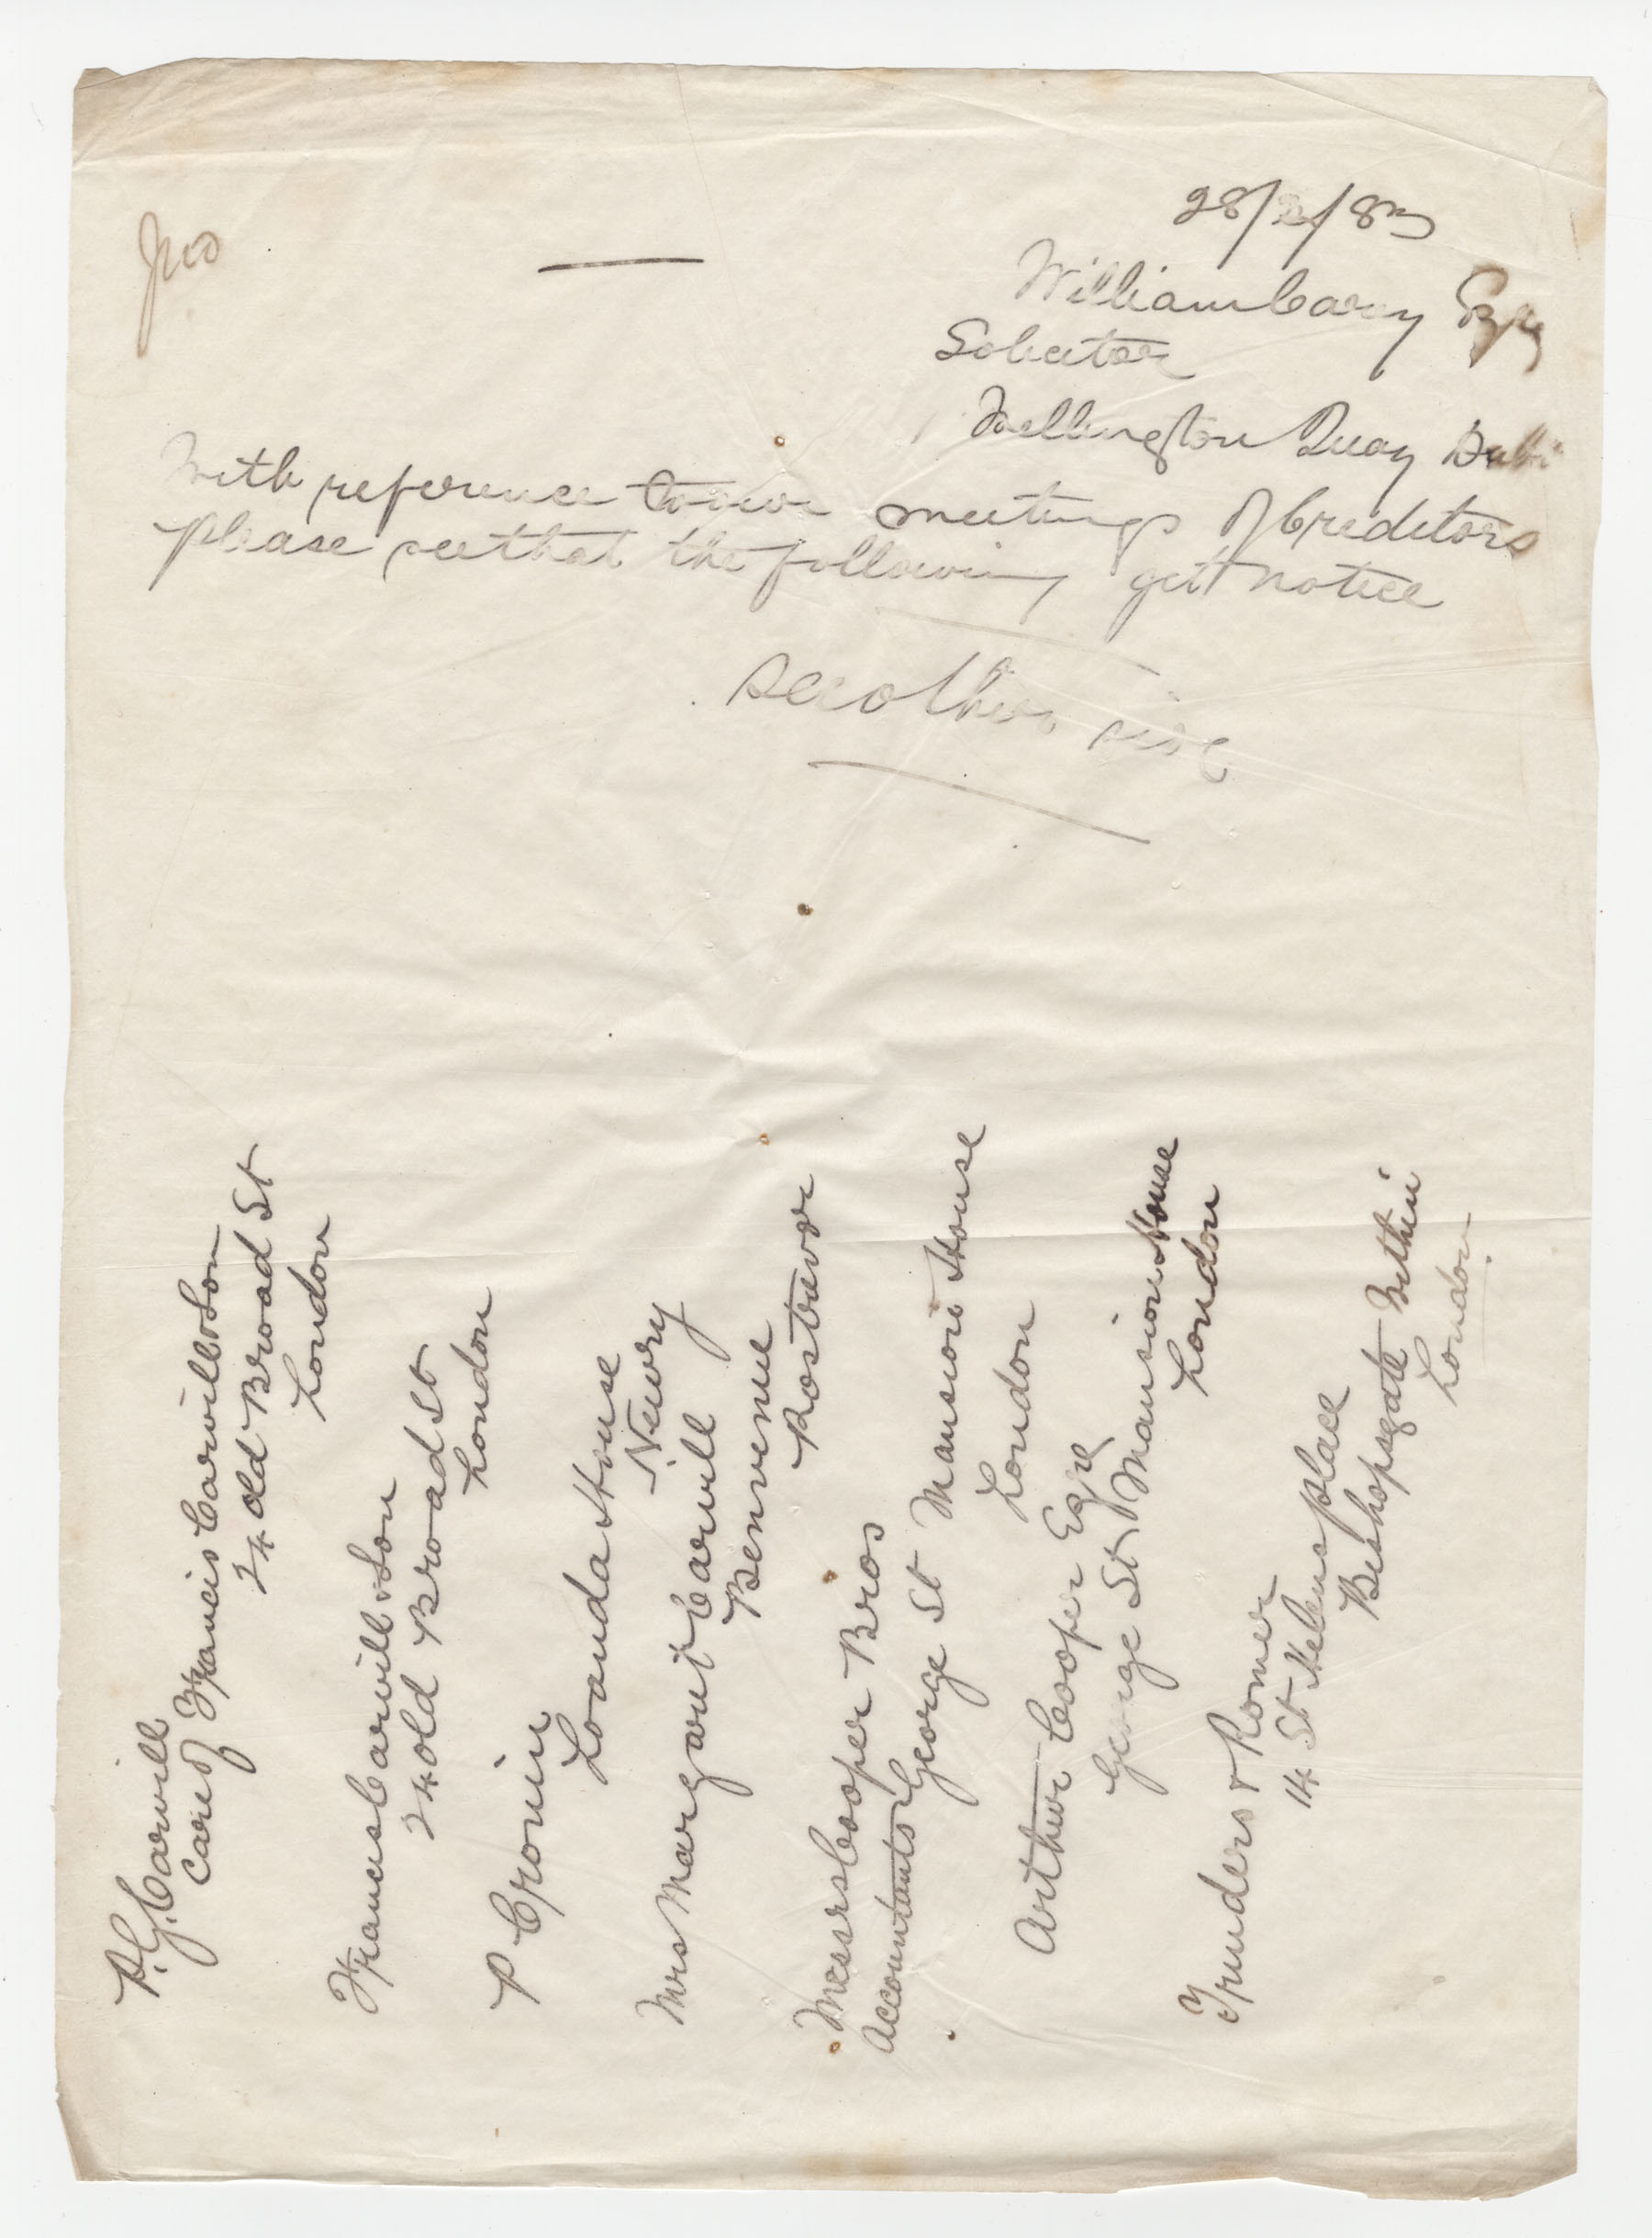 28/2/83
William Carey Esqre
Solicitor
Wellington Quay Dubli
With reference to our meetings of Creditors
please see that the following get notice
see other side
P. J. Carvill
care of Francis Carvill & Son
24 old Broad St
London
Francis Carvill & Son
24 old Broad St
London
P Cronin
Loanda House
Newry
Mrs Margaret Carvill
Benvenue
Rostrevor
Messrs Cooper Bros
Accountants George St Mansion House
London
Arthur Cooper Esqre
George St Mansion House
London
Trinders & Romer
14 St Helens place
Bishopsgate Within
London